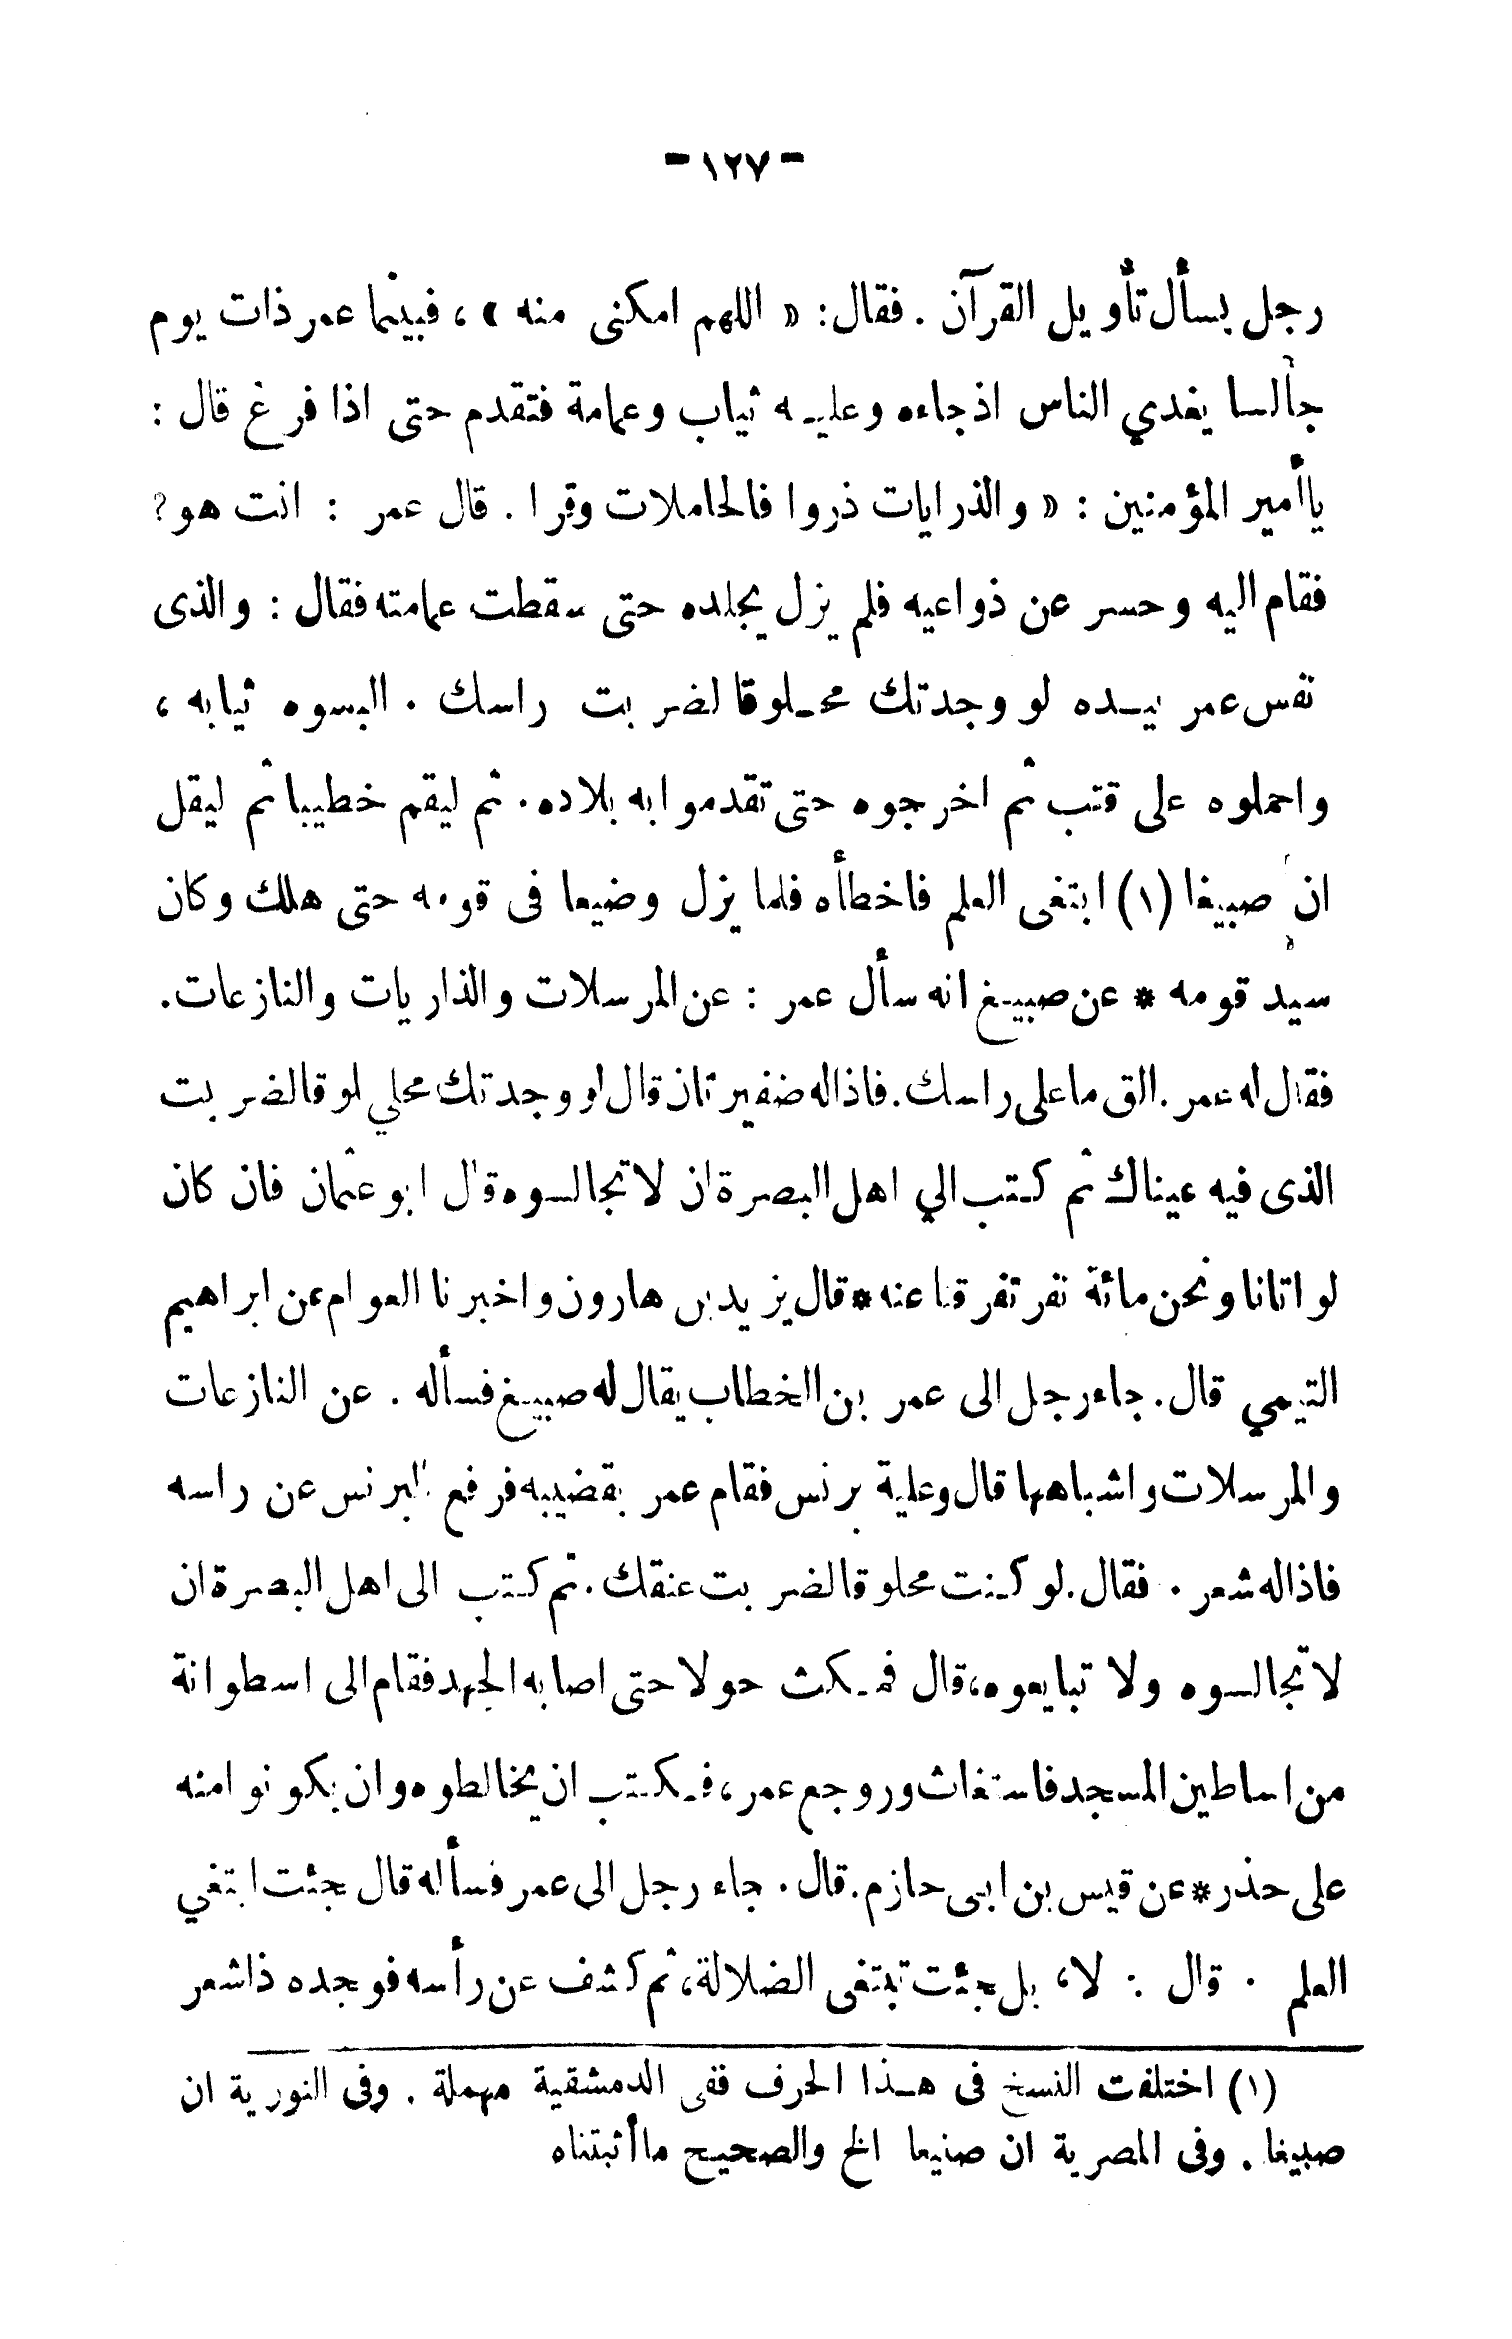 -١٢٧-
رجل يسأل تأويل القرآن . فقال: « اللهم امكنى منه » ، فبينما عمر ذات يوم
جالسا يغدي الناس اذ جاءه وعليه ثياب وعمامة فتقدم حتى اذا فرغ قال :
ياأمير المؤمنين : « والذرايات ذروا فالحاملات وقرا . قال عمر : انت هو ?
فقام اليه وحسر عن ذواعيه فلم يزل يجلده حتى سقطت عمامته فقال : والذى
نفس عمر بيده لو وجدتك محلوقا لضربت راسك . البسوه ثيابه ،
واحملوه على قتب ثم اخرجوه حتى تقدموا به بلاده . ثم ليقم خطيبا ثم ليقل
ان صبيغا (١) ابتغى العلم فاخطأه فلما يزل وضيعا فى قومه حتى هلك وكان
سيد قومه * عن صبيغ انه سأل عمر : عن المرسلات والذاريات والنازعات.
فقال له عمر . الق ما على راسك. فاذاله ضفيرتان قال لو وجدتك محلي لوقا لضربت
الذى فيه عيناك ثم كتب الي اهل البصرة ان لا تجالسوه قال ابو عثمان فان كان
لو اتانا ونحن مائة نفر تفرقنا عنه * قال يزيد بن هارون واخبرنا العوام عن ابراهيم
التيمي قال. جاء رجل الى عمر بن الخطاب يقال له صبيغ فسأله . عن النازعات
والمرسلات واشباهها قال وعلية برنس فقام عمر بقضيبه فرفع البرنس عن راسه
فاذاله شعر . فقال. لو كنت محلوقا لضربت عنقك . ثم كتب الى اهل البصرة ان
لا تجالسوه ولا تبايعوه، قال فمكث حولا حتى اصابه الجهد فقام الى اسطوانة
من اساطين المسجد فاستغاث وروجع عمر، فكتب ان يخالطوه وان يكونوا منه
على حذر * عن قيس بن ابى حازم. قال . جاء رجل الى عمر فسأله قال جئت ابتغي
العلم . قال : لا، بل جئت تبتغى الضلالة، ثم كشف عن رأسه فوجده ذا شعر
(١) اختلفت النسخ فى هذا الحرف ففى الدمشقية مهملة . وفى النورية ان
صبيغا . وفى المصرية ان صنيعا الخ والصحيح ماأثبتناه